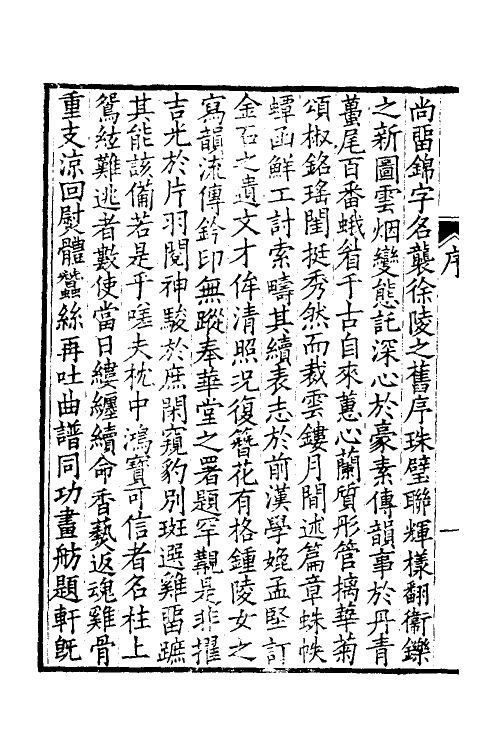 尚留錦字名襲徐陵之舊序珠璧聯輝樣翻衞鑠
之新圖雲烟變態託深心於豪素傳韻事於丹青
蠆尾百番蛾眉千古自來蕙心蘭質彤管摛華菊
頌椒銘瑤閨挺秀然而裁雲鏤月間述篇章蛛帙
蟫函鮮工討索疇其續表志於前漢學媲孟堅訂
金石之遺文才侔清照況復簪花有格鍾陵女之
寫韻流傳鈐印無蹤奉華堂之署題罕覯是非擢
吉光於片羽閱神駿於庶閑窺豹別斑選雞畱蹠
其能該備若是乎嗟夫枕中鴻寶可信者名柱上
鴛絃難逃者數使當日縷纏續命香爇返魂雞骨
重支涼回熨體蠶絲再吐曲譜同功畫舫題軒旣
序
一